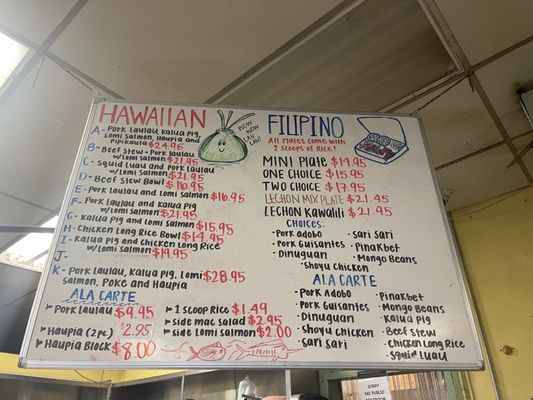 HAWAIIAN
A - Pork Laulau, Kalua pig,
Lomi Salmon, Haupia and
Pipikaula $24.95
B - Beef Stew - Pork Laulau
w/Lomi Salmon $21.95
C - Squid Luau and Pork Laulau
w/Lomi Salmon $21.95
D - Beef Stew Bowl $16.95
E - Pork Laulau and Lomi Salmon $16.95
F - Pork Laulau and Kalua pig
w/Lomi Salmon $21.95
G - Kalua pig and Lomi Salmon $15.95
H - Chicken Long Rice Bowl $14.95
I - Kalua pig and Chicken Long Rice
w/Lomi Salmon $19.95
J -
K - Pork Laulau, Kalua pig, Lomi $28.95
Salmon, Poke and Haupia
ALA CARTE
Pork Laulau $9.95
Haupia (2pc.) $2.95
Haupia Block $8.00
1 scoop Rice $1.49
side mac salad $2.95
side Lomi salmon $2.00
FILIPINO
All Plates come with
2 scoops of Rice!
MINI PLATE $14.95
ONE CHOICE $15.95
TWO CHOICE $17.95
LECHON MIX PLATE $21.95
LECHON KAWALILI $21.95
CHOICES:
- Pork Adobo
- Pork Guisantes
- Dinuguan
- Shoyu Chicken
- Sari Sari
- Pinakbet
- Mongo Beans
ALA CARTE
- Pork Adobo
- Pork Guisantes
- Dinuguan
- Shoyu Chicken
- Sari Sari
- Pinakbet
- Mongo Beans
- Kalua Pig
- Beef Stew
- Chicken Long Rice
- Squid Luau
SORRY
NO PUBLIC
RESTROOM